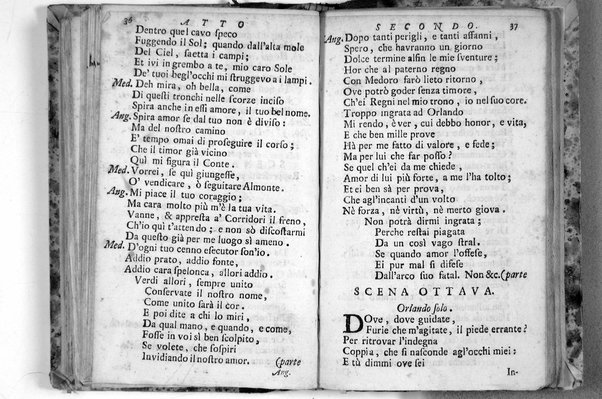 36 ATTO
Dentro quel cavo speco
Fuggendo il Sol; quando dall'alta mole
Del Ciel, saetta i campi;
Et ivi in grembo a te, mio caro Sole
De' tuoi begl'occhi mi struggevo a i lampi.
Med. Deh mira, oh bella, come
Di questi tronchi nelle scorze inciso
Spira anch'e in essi amore, il tuo bel nome.
Aug. Spira amor se dal tuo non è diviso:
Ma del nostro camino
E' tempo omai di proseguire il corso;
Che il timor già vicino
Quì mi figura il Conte.
Med. Vorrei, se quì giungesse,
O' vendicare, ò seguitare Almonte.
Aug. Mi piace il tuo coraggio;
Ma cara molto più m'è la tua vita.
Vanne, & appresta a' Corridori il freno,
Ch'io quì t'attendo; e non sò discostarmi
Da questo già per me luogo sì ameno.
Med. D'ogni tuo cenno esecutor son'io.
Addio prato, addio fonte,
Addio cara spelonca, allori addio.
Verdi allori, sempre unito
Conservate il nostro nome,
Come unito sarà il cor.
E poi dite a chi lo miri,
Da qual mano, e quando, e come,
Fosse in voi sì ben scolpito,
Se volete, che sospiri
Invidiando il nostro amor. (parte
Ang.
SECONDO. 37
Aug. Dopo tanti perigli, e tanti affanni,
Spero, che havranno un giorno
Dolce termine alfin le mie sventure;
Hor che al paterno regno
Con Medoro farò lieto ritorno,
Ove potrò goder senza timore,
Ch'ei Regni nel mio trono, io nel suo core.
Troppo ingrata ad Orlando
Mi rendo, è ver, cui debbo honor, e vita,
E che ben mille prove
Hà per me fatto di valore, e fede;
Ma per lui che far posso?
Se quel ch'ei da me chiede,
Amor di lui più forte, a me l'ha tolto;
Et ei ben sà per prova,
Che agl'incanti d'un volto
Nè forza, nè virtù, nè merto giova.
Non potrà dirmi ingrata;
Perche restai piagata
Da un così vago stral.
Se quando amor l'offese,
Ei pur mal si difese
Dall'arco suo fatal. Non &c. (parte
SCENA OTTAVA.
Orlando solo.
DOve, dove guidate,
Furie che m'agitate, il piede errante?
Per ritrovar l'indegna
Coppia, che si nasconde agl'occhi miei:
E tù dimmi ove sei
In-